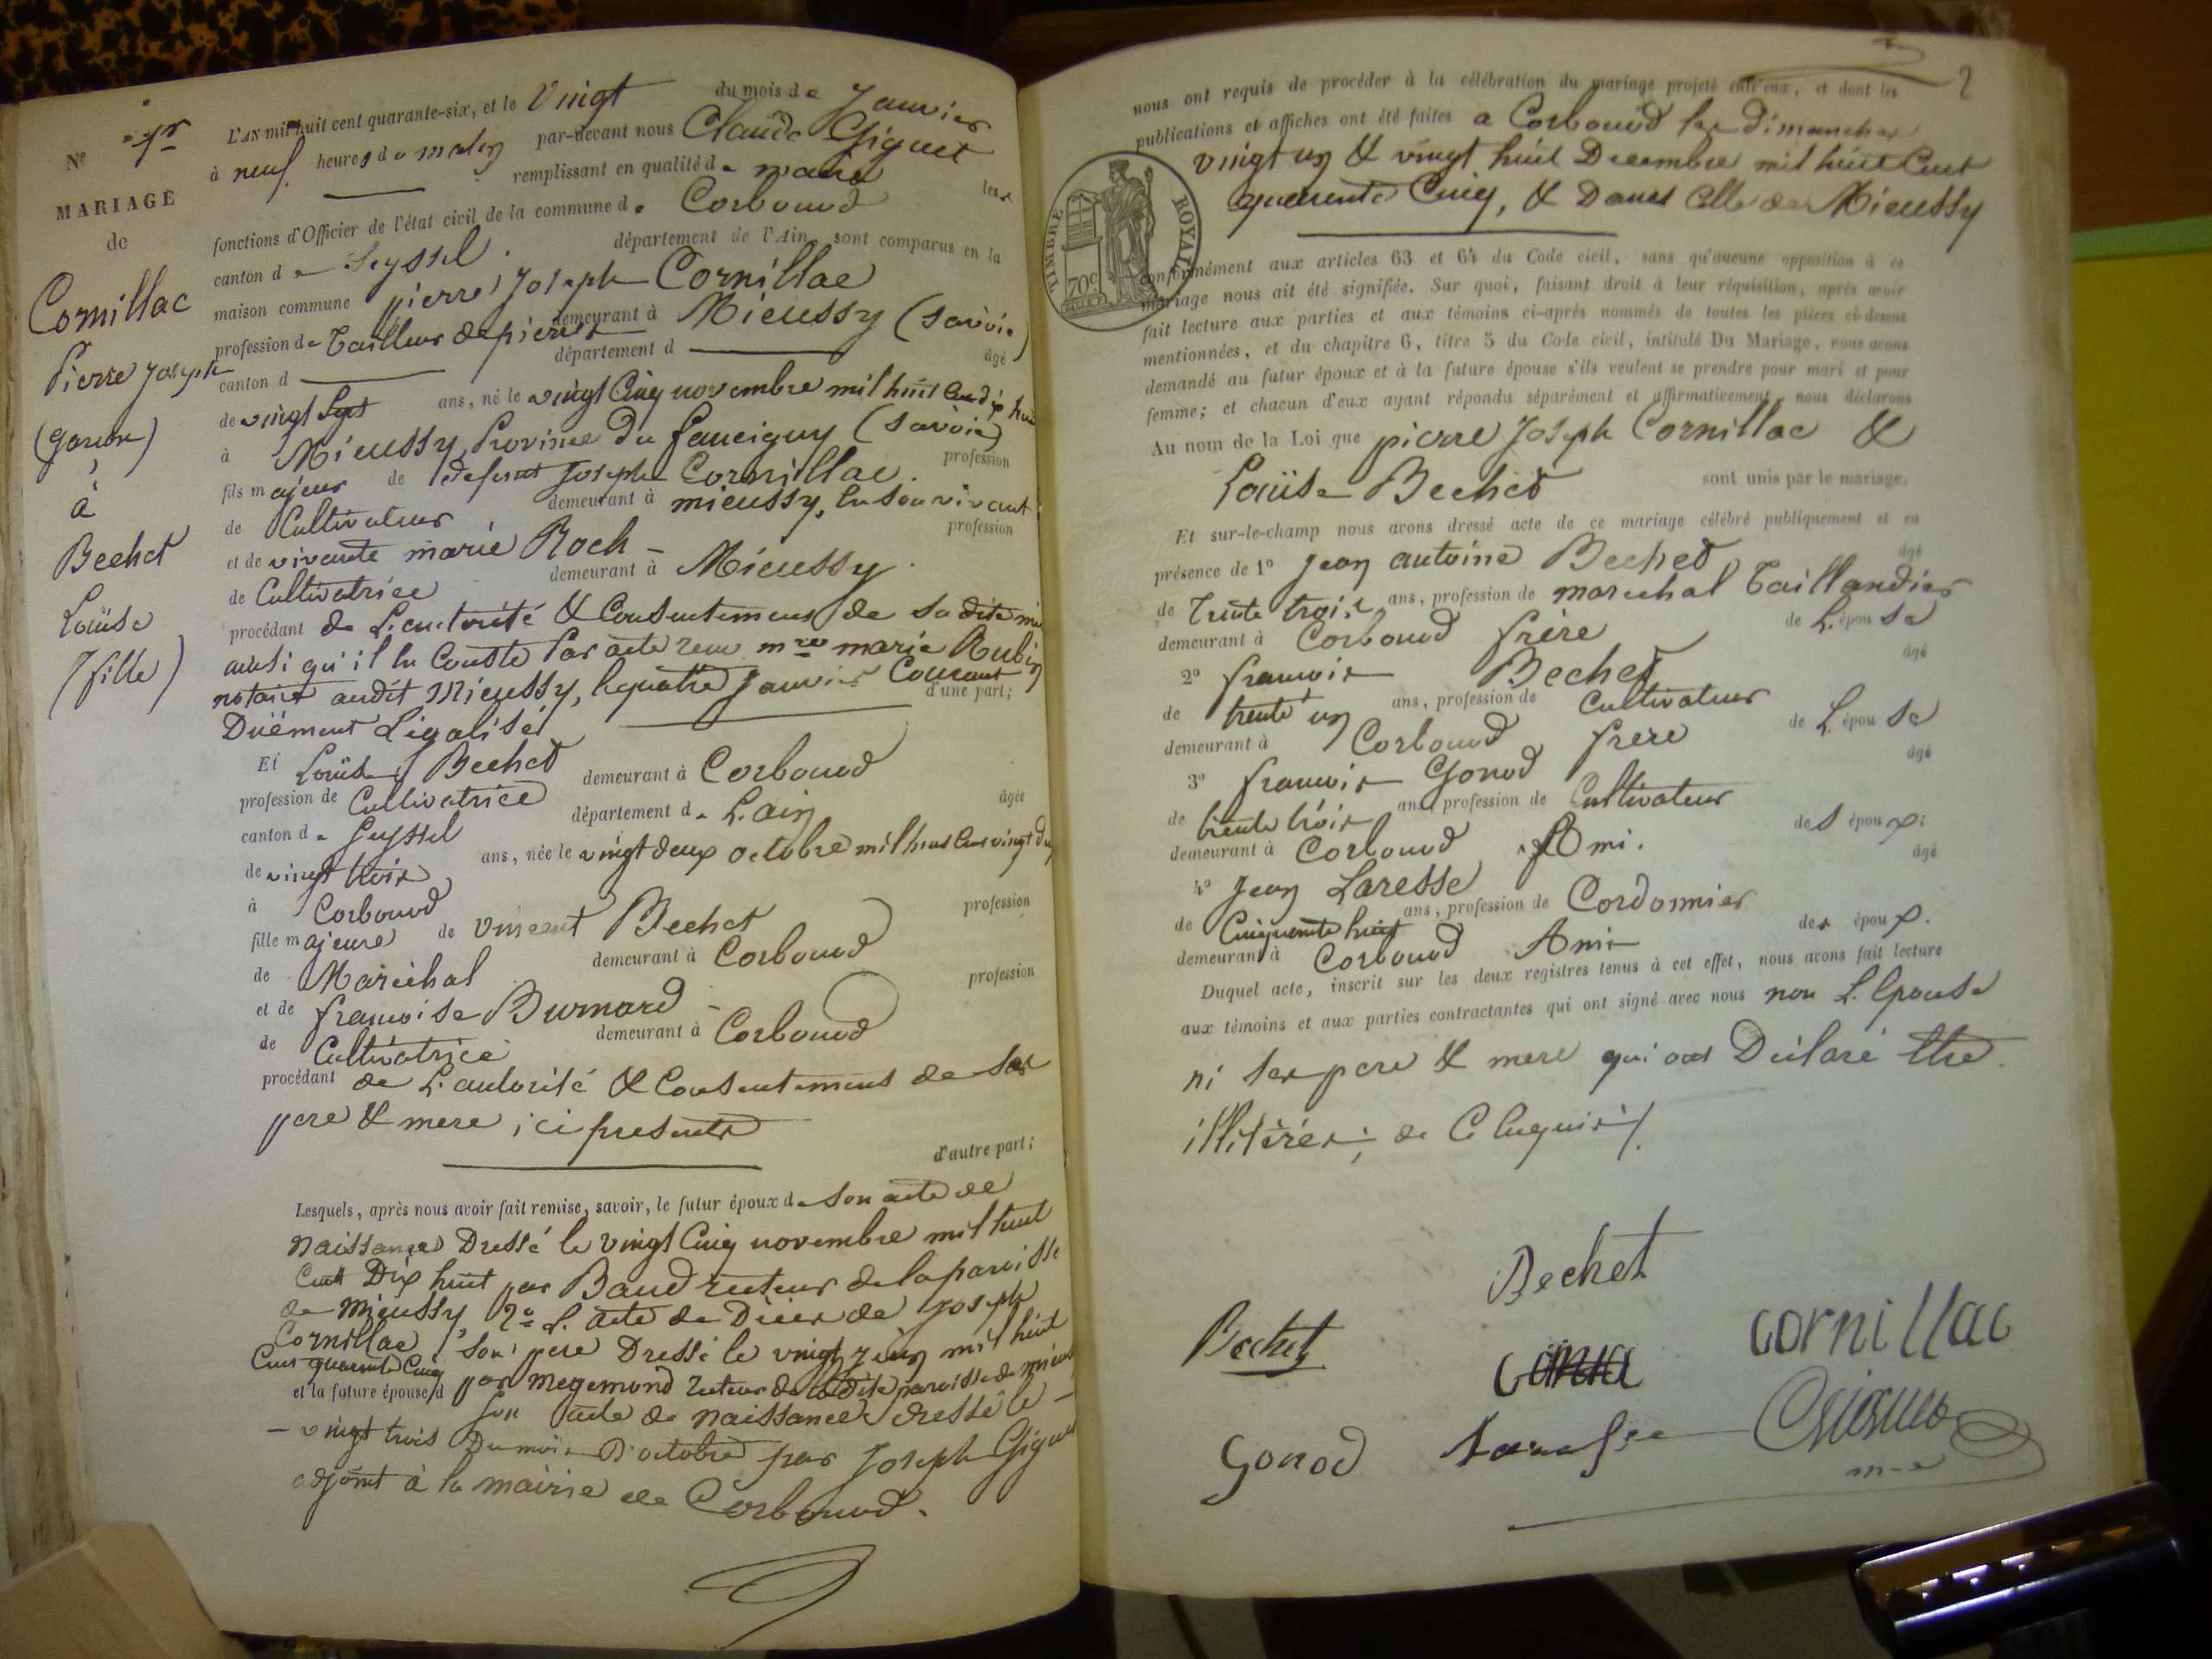 Nº 1er
MARIAGE
de
Cornillac
Pierre Joseph
(garçon)
à
Bechet
Louïse
(fille)
L'AN mil huit cent quarante-six, et le vingt du mois de Janvier
à neuf heures du matin par-devant nous Claude Giguet
remplissant en qualité de maire les
fonctions d'Officier de l'état civil de la commune de Corbonod
canton de Seyssel département de l'Ain, sont comparus en la
maison commune pierre Joseph Cornillac
profession de Tailleur de pierres demeurant à Mieussy (Savoie)
canton d département d âgé
de vingt Sept ans, né le vingt Cinq novembre mil huit Cent dix huit
à Mieussy, Province du faucigny (Savoie)
fils majeur de défunt Joseph Cornillac profession
de Cultivateur demeurant à mieussy, en son vivant
et de vivante marie Roch profession
de Cultivatrice demeurant à Mieussy
procédant de L'autorité & Consentement de sa dite mère
ainsi qu'il en Conste Par acte reçu me marie Rubin
notaire audit Mieussy, le quatre Janvier Courant
Dûement Légalisé d'une part;
Et Louïse Bechet demeurant à Corbonod
profession de Cultivatrice département de L'ain
canton de Seyssel âgée
de vingt trois ans, née le vingt deux octobre mil huit Cent vingt deux
à Corbonod
fille majeure de vincent Bechet profession
de Maréchal demeurant à Corbonod
et de françoise Burnard profession
de Cultivatrice demeurant à Corbonod
procédant de L'autorité & Consentement de Ses
pere & mere ici presents
d'autre part;
Lesquels, après nous avoir fait remise, savoir, le futur époux de Son acte de
naissance Dressé le vingt Cinq novembre mil huit
Cent Dix huit par Baud recteur de la paroisse
de Mieussy, 2º L'acte de Décès de Joseph
Cornillac, son pere Dressé le vingt Juin mil huit
Cent quarante Cinq par Megemond recteur de la Dite paroisse de mieussy
et la future épouse d Son acte de naissance dressé le
vingt trois Du mois D'octobre par Joseph Giguet
adjoint à la mairie de Corbonod.
2
nous ont requis de procéder à la célébration du mariage projeté entr'eux, et dont les
publications et affiches ont été faites a Corbonod les Dimanches
vingt un & vingt huit Decembre mil huit Cent
quarante Cinq, & Dans Celle de Mieussy
TIMBRE ROYAL
70c
conformément aux articles 63 et 64 du Code civil, sans qu'aucune opposition à ce
mariage nous ait été signifiée. Sur quoi, faisant droit à leur réquisition, après avoir
fait lecture aux parties et aux témoins ci-après nommés de toutes les pièces ci-dessus
mentionnées, et du chapitre 6, titre 5 du Code civil, intitulé Du Mariage, nous avons
demandé au futur époux et à la future épouse s'ils veulent se prendre pour mari et pour
femme; et chacun d'eux ayant répondu séparément et affirmativement, nous déclarons
Au nom de la Loi que pierre Joseph Cornillac &
Louïse Bechet sont unis par le mariage.
Et sur-le-champ nous avons dressé acte de ce mariage célébré publiquement et en
présence de 1º Jean antoine Bechet, âgé
de Trente trois ans, profession de marechal Taillandier
demeurant à Corbonod frère de L'épouse
2º françois Bechet âgé
de trente un ans, profession de Cultivateur
demeurant à Corbonod frere de L'épouse
3º françois Gonod âgé
de trente trois ans, profession de Cultivateur
demeurant à Corbonod Ami. des époux;
4º Jean Laresse âgé
de Cinquante huit ans, profession de Cordonnier
demeurant à Corbonod Ami des époux.
Duquel acte, inscrit sur les deux registres tenus à cet effet, nous avons fait lecture
aux témoins et aux parties contractantes qui ont signé avec nous non L'Epouse
ni Ses pere & mere qui ont Déclaré être
illitérés; de Ce Enquis
Bechet
Bechet
cornillac
Gonod
Giguet